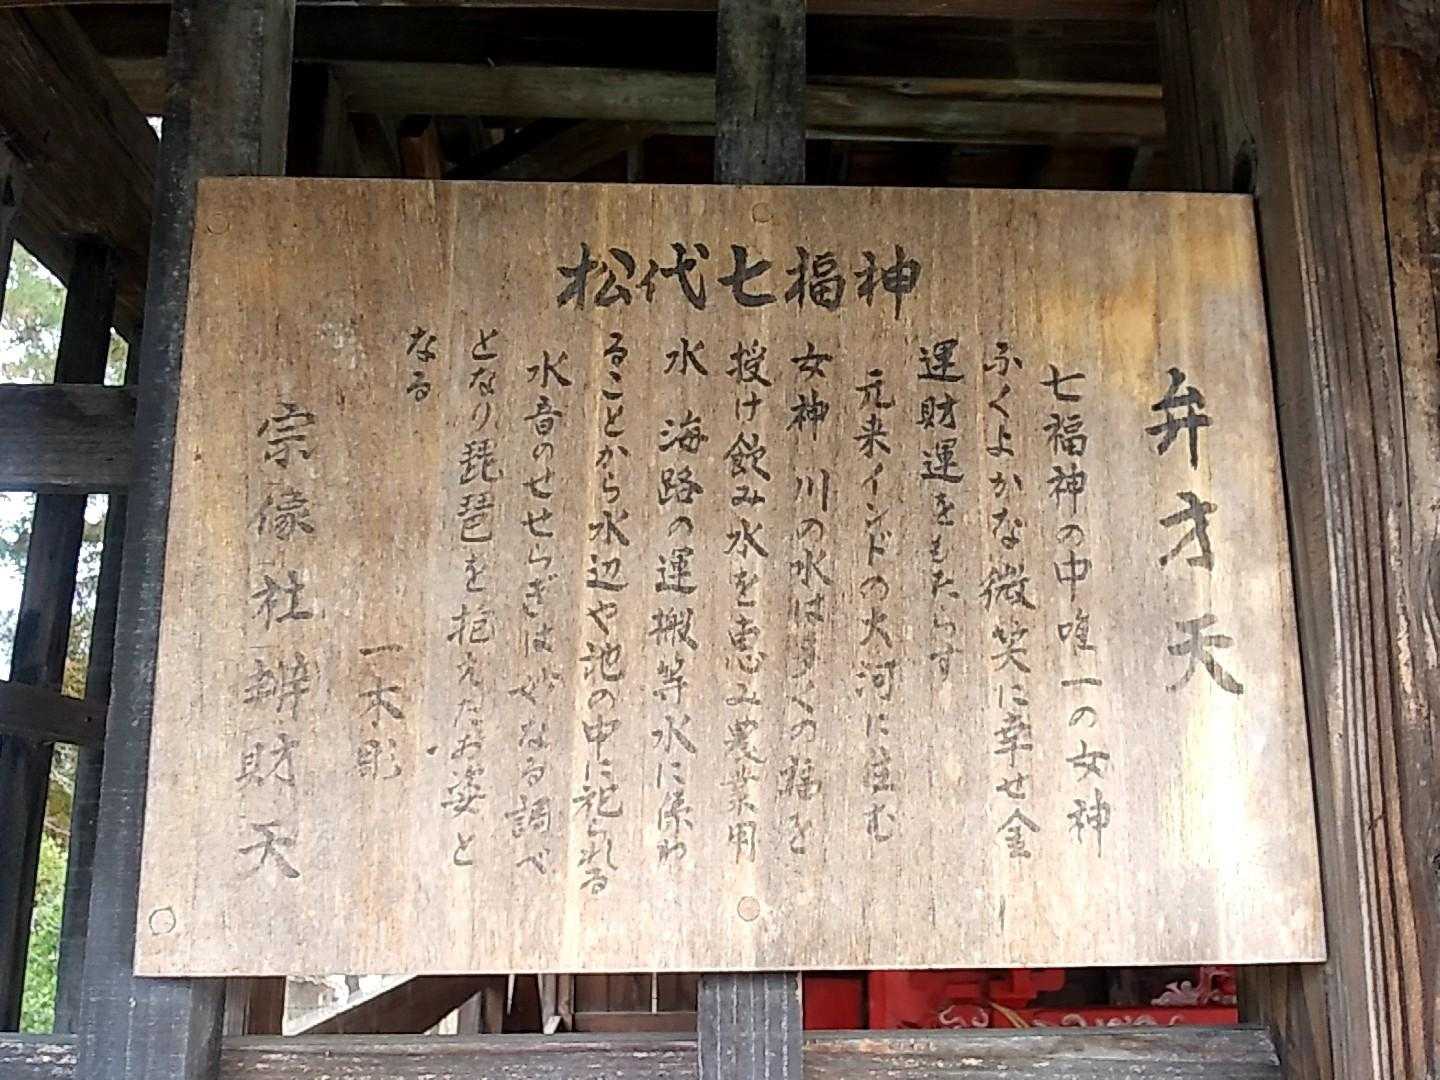 松代七福神
弁才天
七福神の中唯一の女神
ふくよかな微笑に幸せ金
運財運をもたらす
元来インドの大河に住む
女神 川の水は多くの福を
授け飲み水を恵み農業用
水 海路の運搬等水に係わ
ることから水辺や池の中に祀られる
水音のせせらぎは妙なる調べ
となり琵琶を抱えたお姿と
なる
一木彫
宗像社辨財天